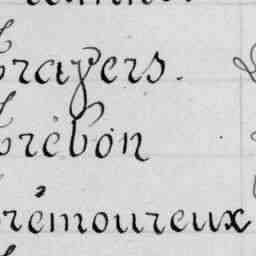 Trayers.
Trébon
Trémoureux